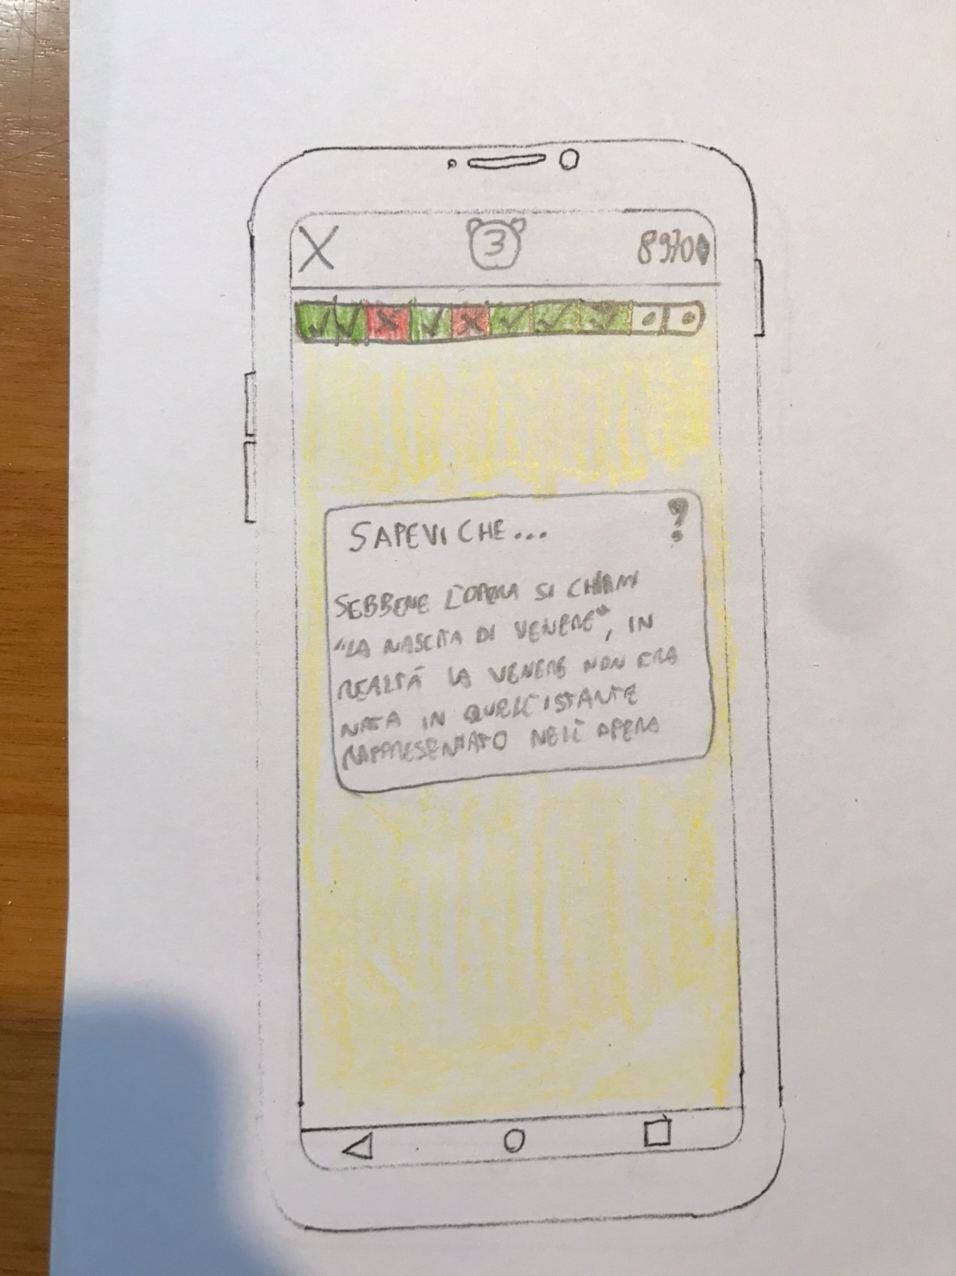 X 3 8970
SAPEVI CHE... ?
SEBBENE L'OPERA SI CHIAMI
"LA NASCITA DI VENERE", IN
REALTÀ LA VENERE NON ERA
NATA IN QUELL'ISTANTE
RAPPRESENTATO NELL'OPERA